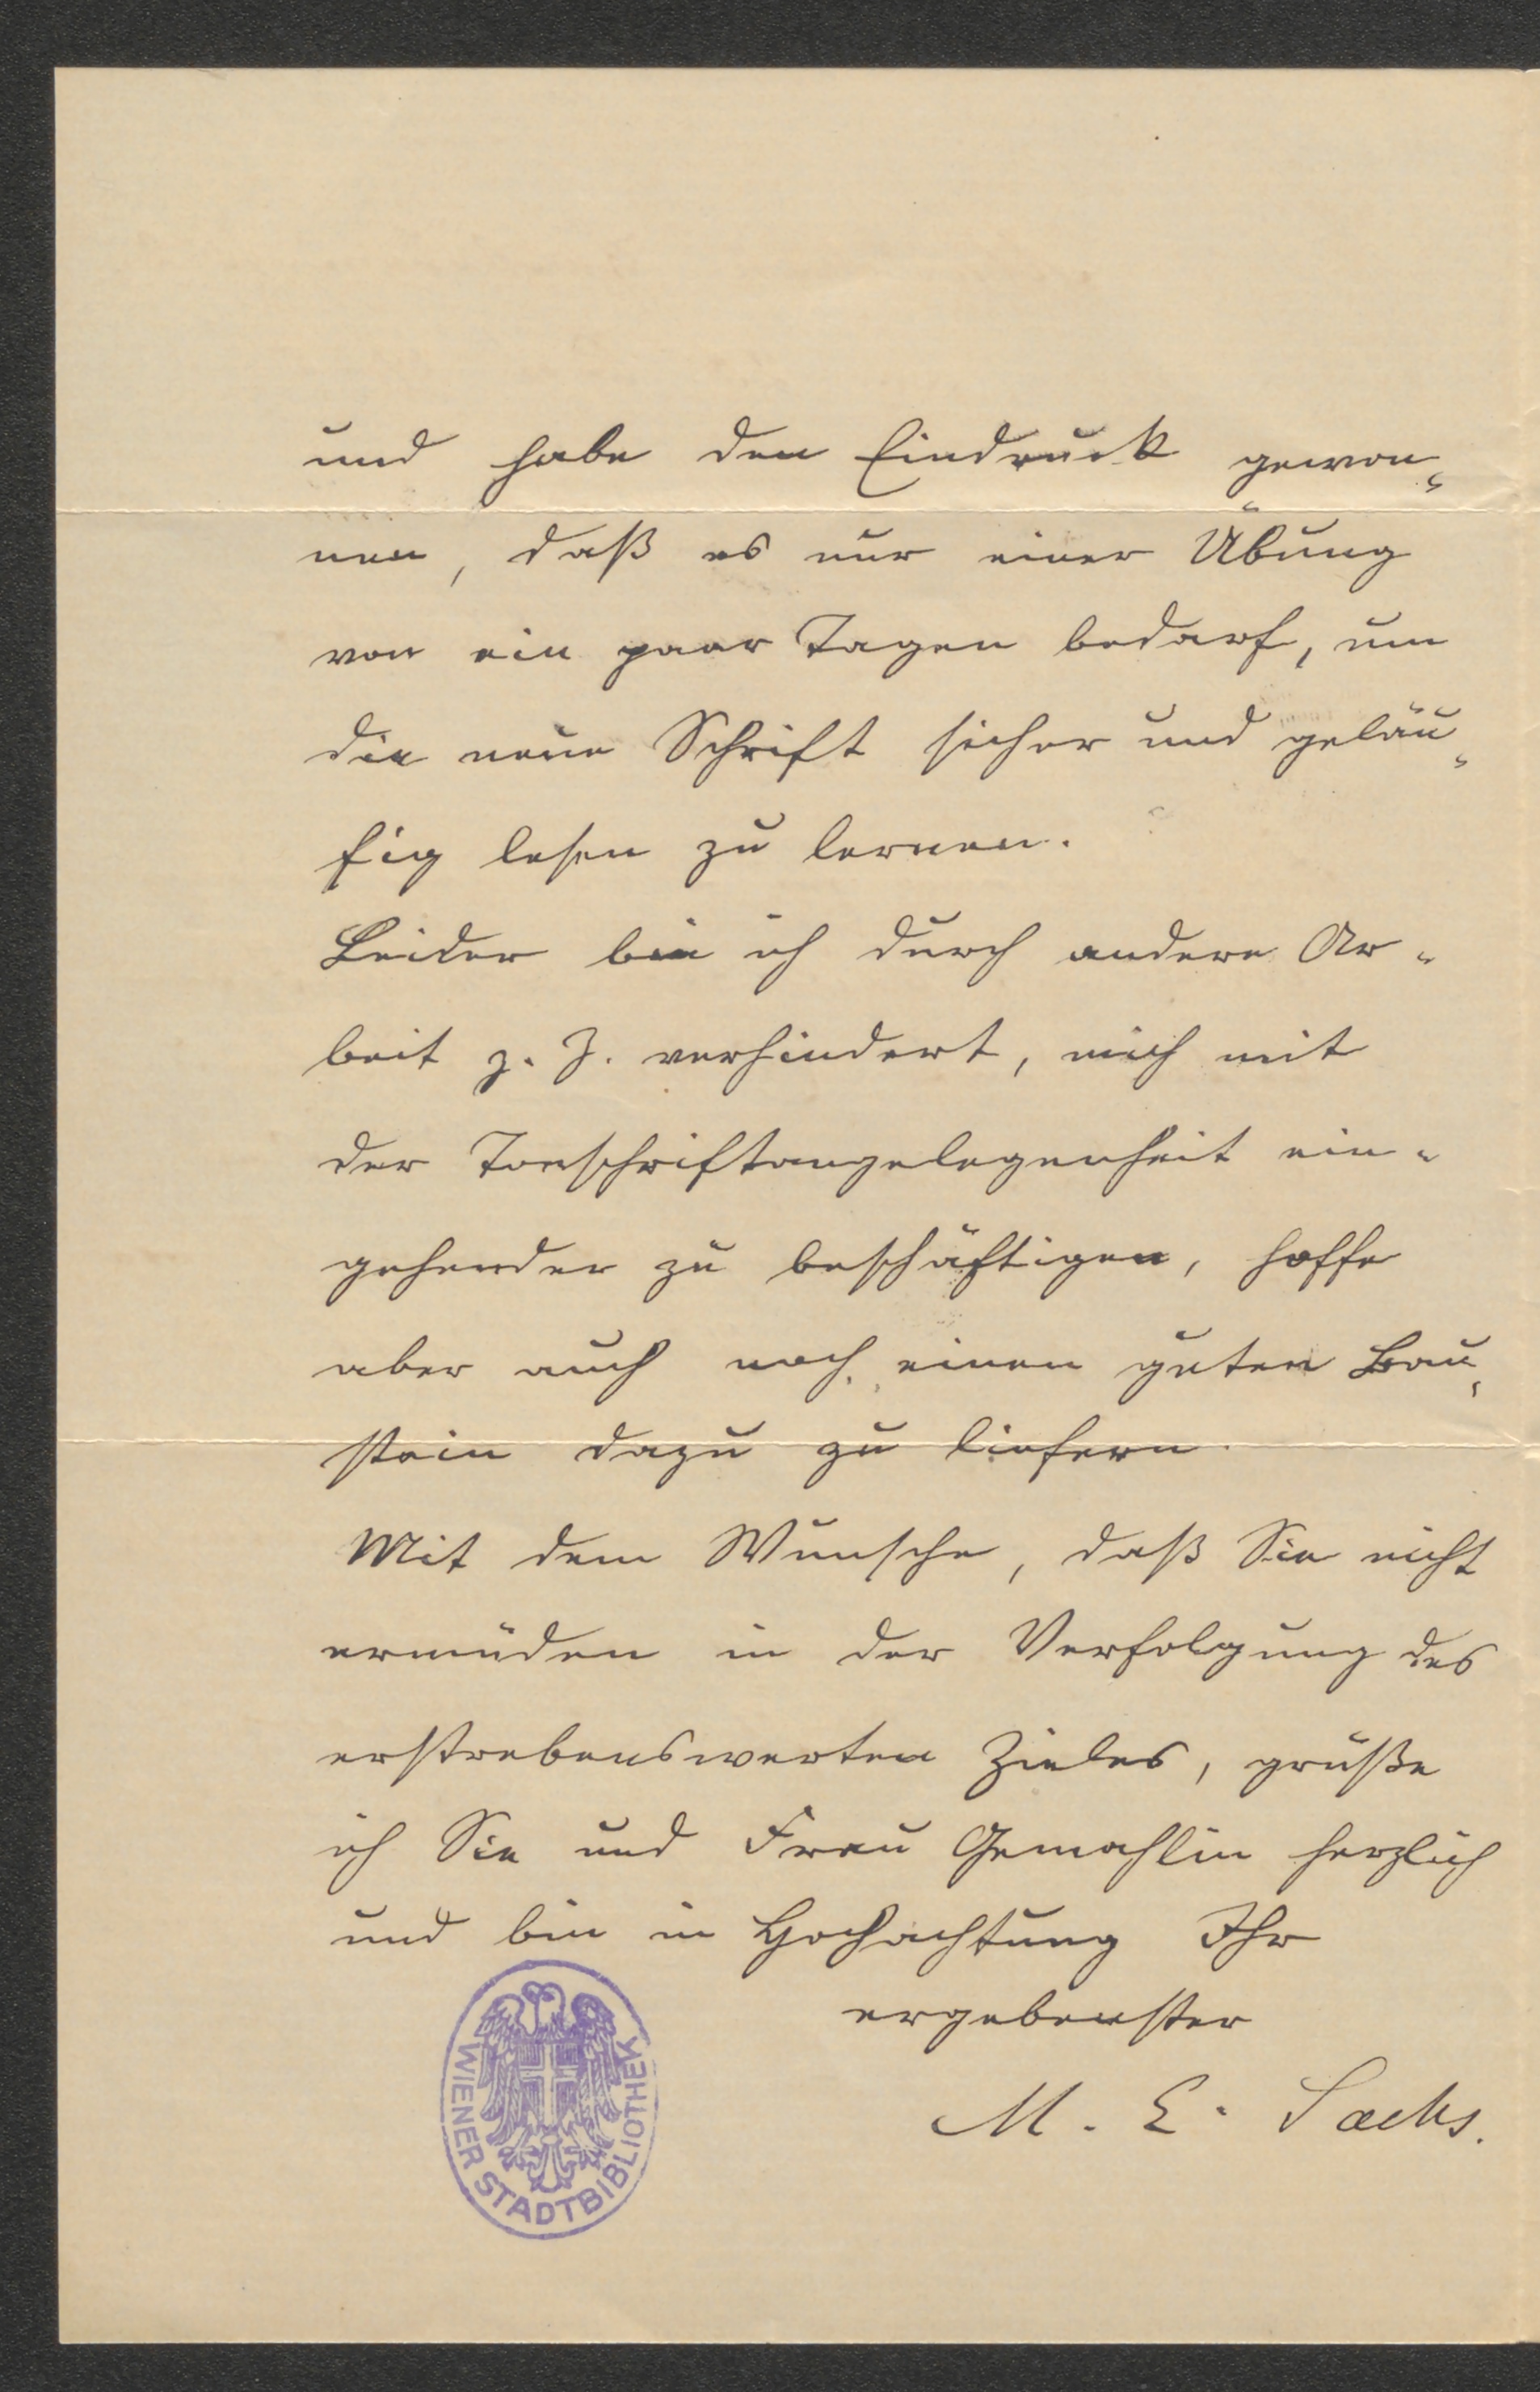 und habe den Eindruck gewon-
nen, daß es nur einer Übung
von ein paar Tagen bedarf, um
die neue Schrift sicher und geläu-
fig lesen zu lernen.
Leider bin ich durch andere Ar-
beit z. Z. verhindert, mich mit
der Tonschriftangelegenheit ein-
gehender zu beschäftigen, hoffe
aber auch noch einen guten Bau-
stein dazu zu liefern.
Mit dem Wunsche, daß Sie nicht
ermüden in der Verfolgung des
erstrebenswerten Zieles, grüße
ich Sie und Frau Gemahlin herzlich
und bin in Hochachtung Ihr
ergebenster
M. E. Sachs.
WIENER STADTBIBLIOTHEK